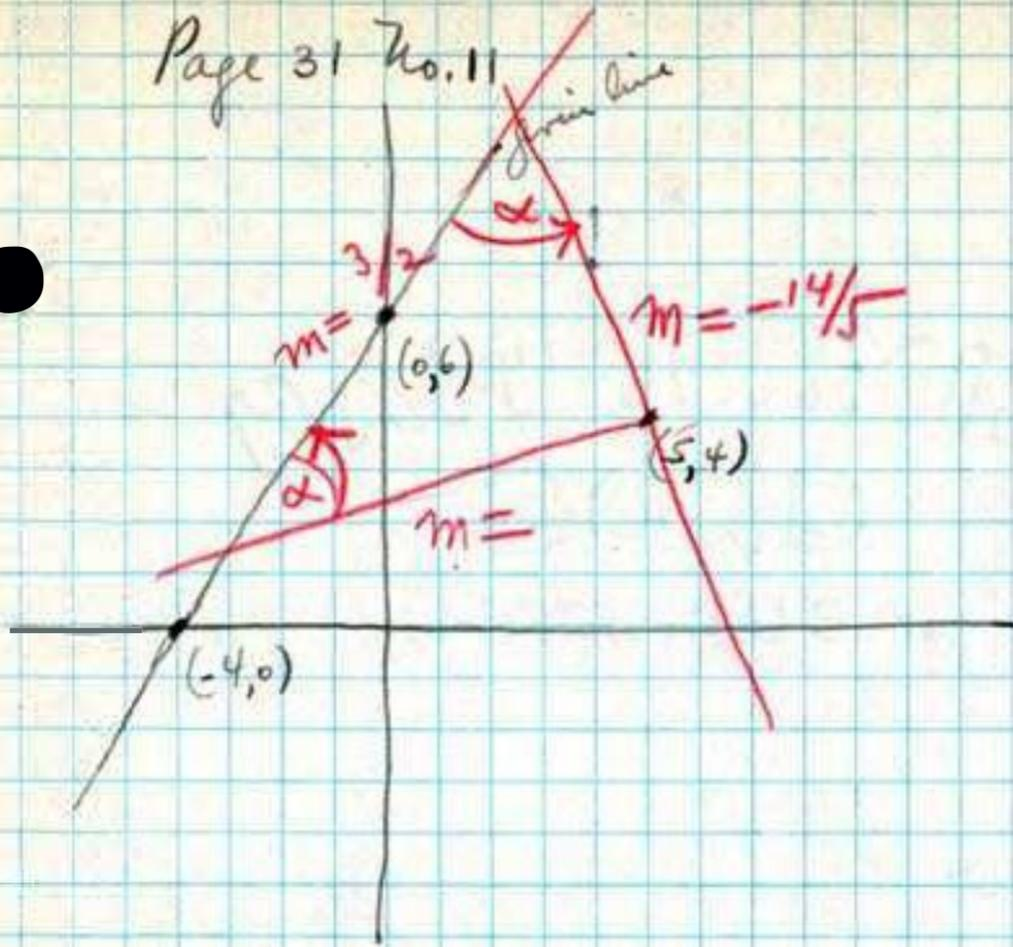 Page 31 No. 11
given line
α
m = 3/2
m = -14/5
(0,6)
(5,4)
α
m =
(-4,0)